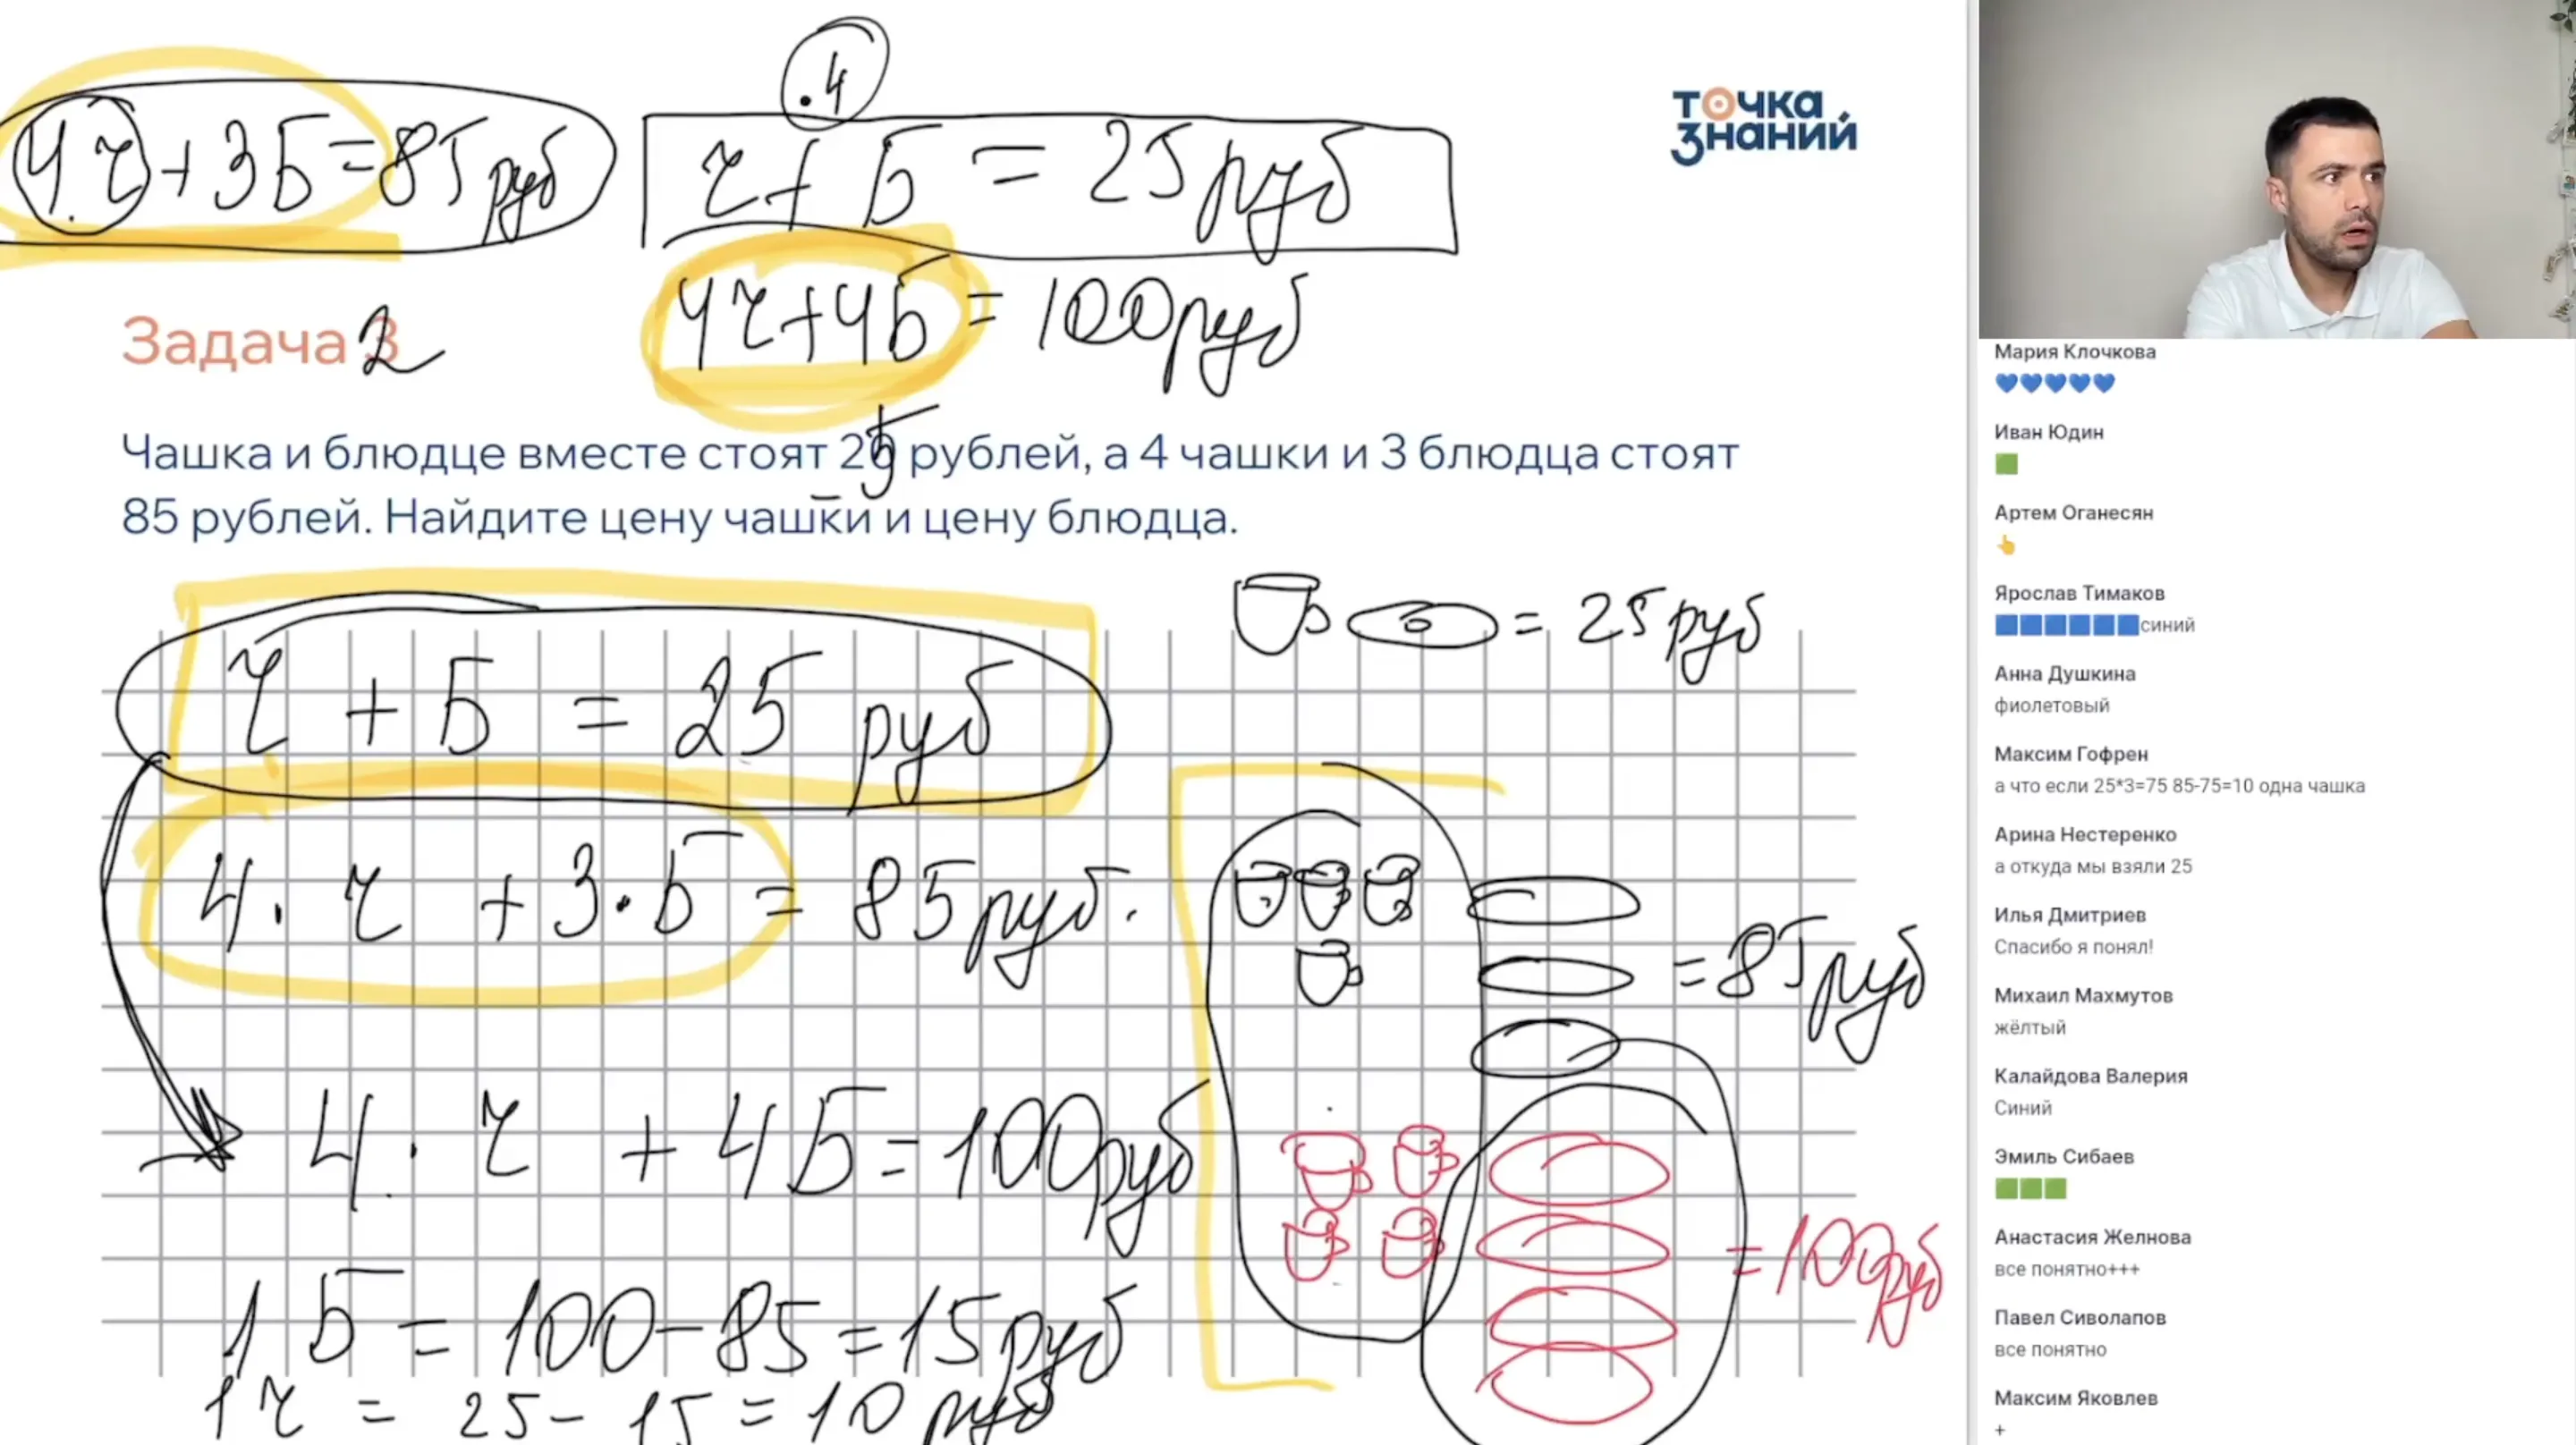 .4
4ч+3Б=85руб
ч+Б=25руб
4ч+4Б=100руб
точка
знаний
Задача 3 2
Чашка и блюдце вместе стоят 25 рублей, а 4 чашки и 3 блюдца стоят
85 рублей. Найдите цену чашки и цену блюдца.
= 25руб
ч + Б = 25 руб
4·ч + 3·Б = 85руб.
=85руб
4·ч + 4Б=100руб
=100руб
1Б = 100-85=15руб
1ч = 25-15=10руб
Мария Клочкова
💙💙💙💙💙
Иван Юдин
🟩
Артем Оганесян
👆
Ярослав Тимаков
🟦🟦🟦🟦🟦🟦синий
Анна Душкина
фиолетовый
Максим Гофрен
а что если 25*3=75 85-75=10 одна чашка
Арина Нестеренко
а откуда мы взяли 25
Илья Дмитриев
Спасибо я понял!
Михаил Махмутов
жёлтый
Калайдова Валерия
Синий
Эмиль Сибаев
🟩🟩🟩
Анастасия Желнова
все понятно+++
Павел Сиволапов
все понятно
Максим Яковлев
+